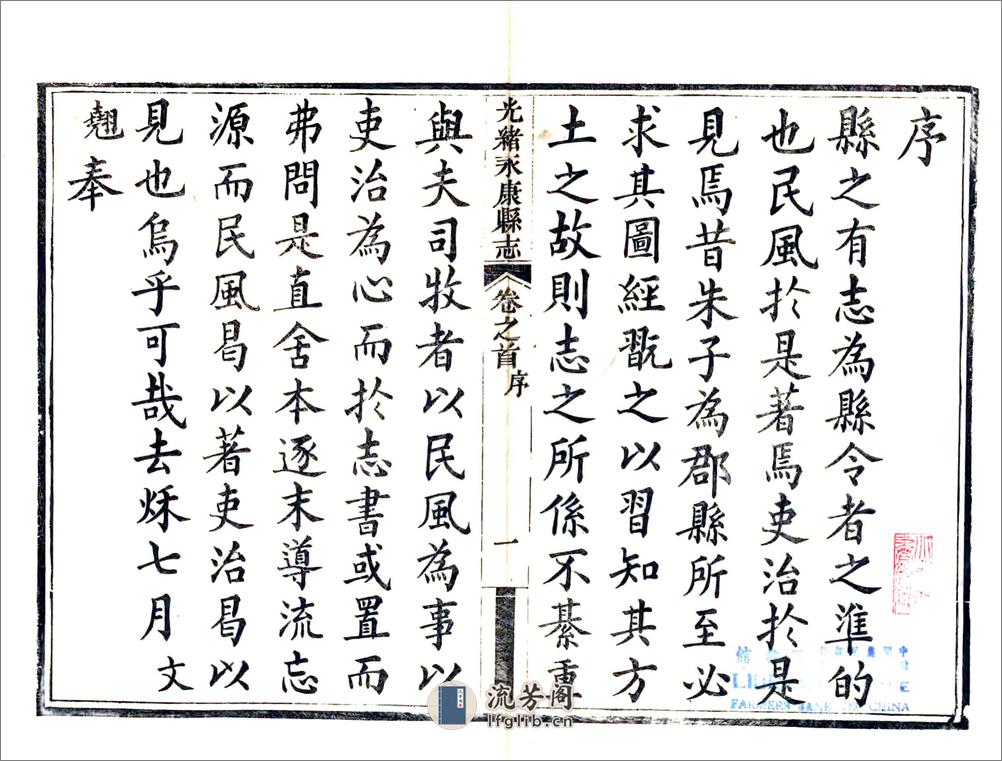 序
縣之有志為縣令者之準的
也民風於是著焉吏治於是
見焉昔朱子為郡縣所至必
求其圖經翫之以習知其方
土之故則志之所係不綦重
光緒永康縣志 卷之首 序 一
與夫司牧者以民風為事以
吏治為心而於志書或置而
弗問是直舍本逐末導流忘
源而民風曷以著吏治曷以
見也烏乎可哉去秌七月文
翹奉
FARMERS BANK OF CHINA
流芳阁
lfglib.cn